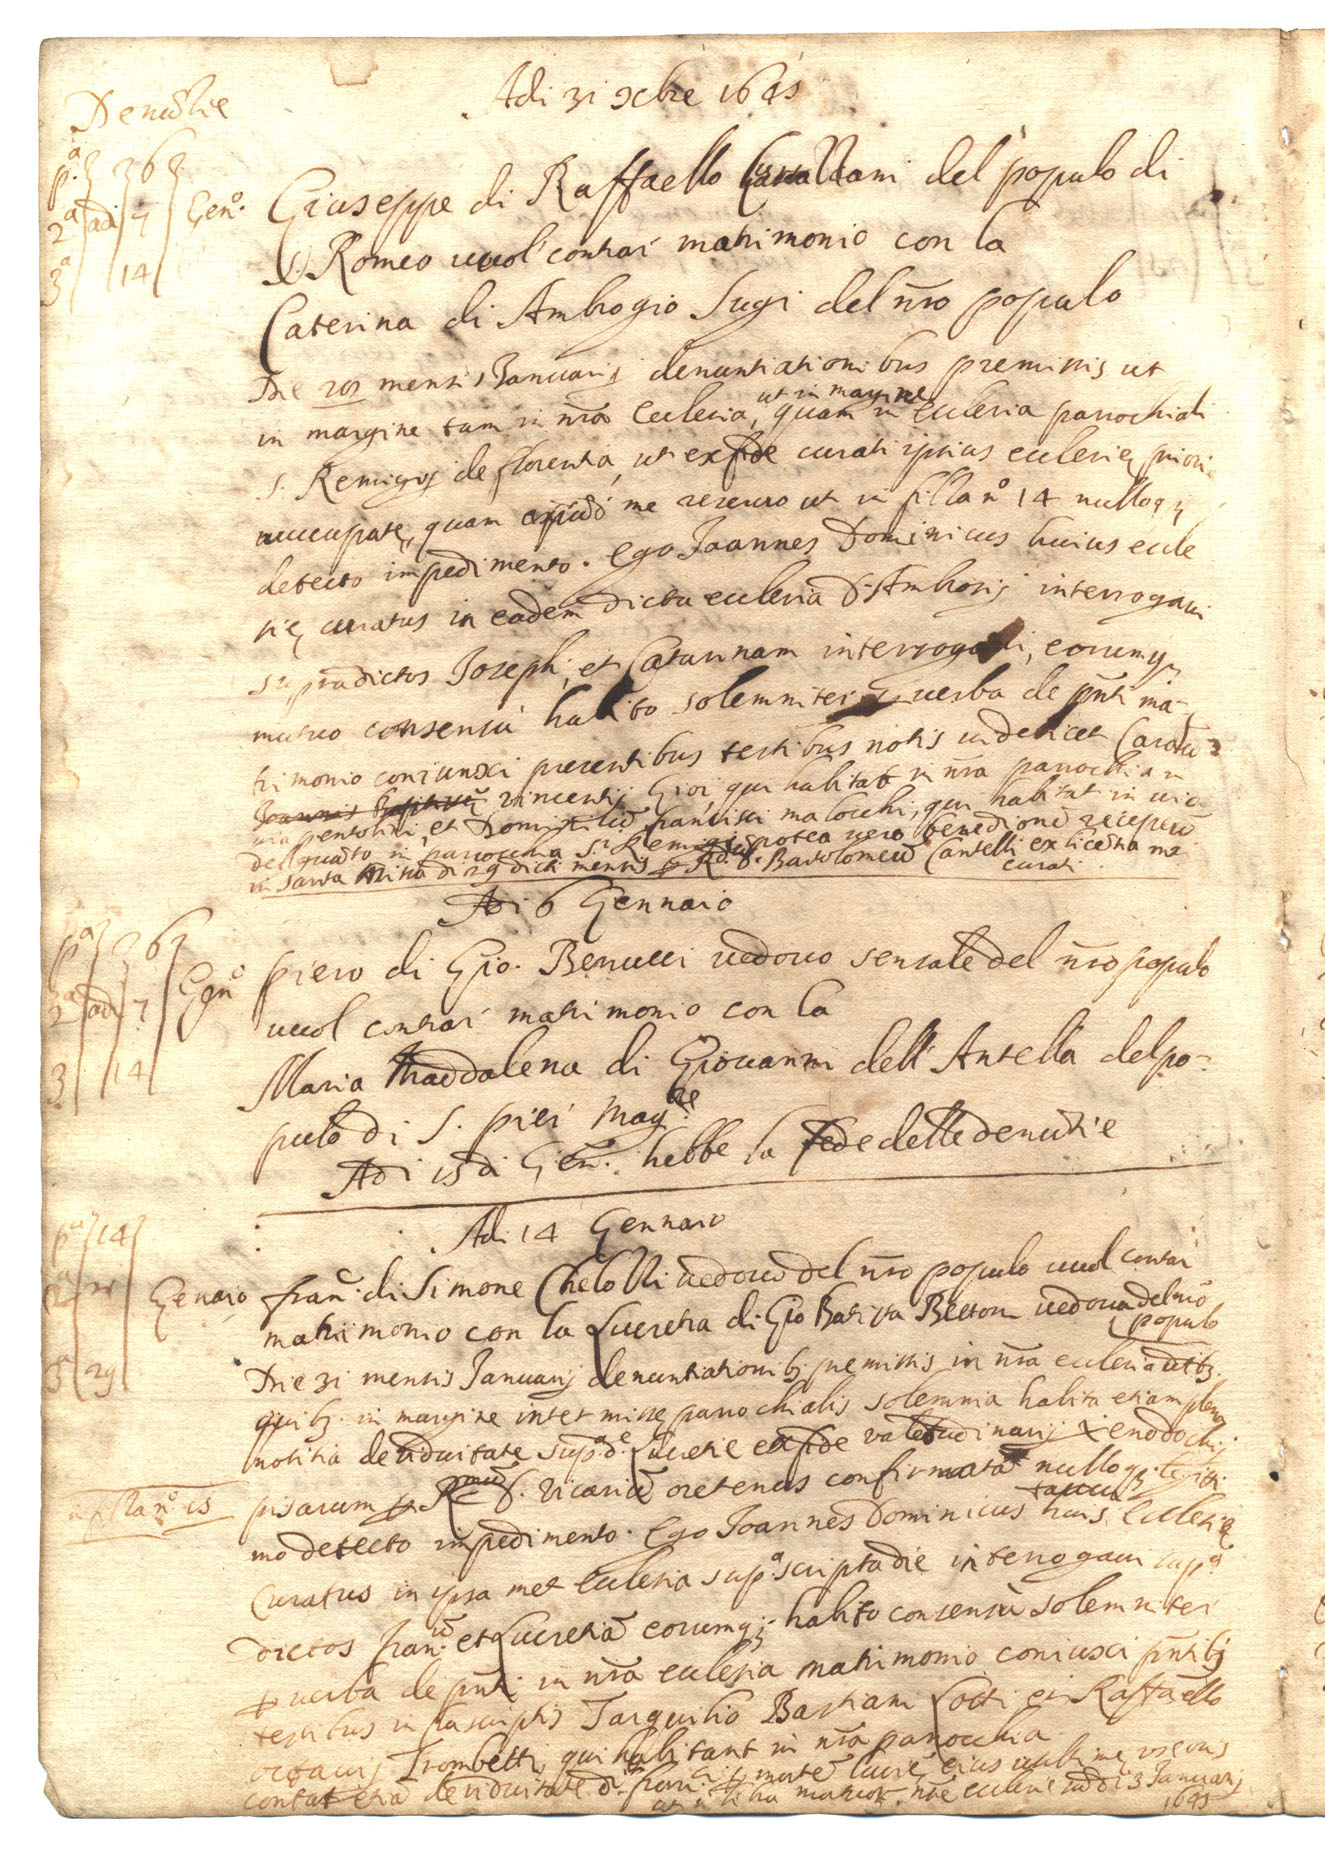 Adi 31 xbre 1645
Denũtie
p.ª 3 36 3
2ª adi 7 Gen.º
3ª 14
Giuseppe di Raffaello del populo di
S. Romeo vuol contrar' matrimonio con la
Caterina di Ambrogio Sugi del nr̃o populo
Die mensis Januarij denuntiationibus premissis ut
in margine tam in nr̃a Ecclesia, ut in margine quam in ecclesia parrochiali
S. Remigij de florentia, ut ex fide curati ipsius ecclesię priorię
nuccupatę, quam apud me reservo ut in filza nº 14 nulloq;
detecto impedimento. Ego Joannes Dominicus huius eccle
się curatus in eadem dicta ecclesia S. Ambrosij interrogavi
supradictos Joseph, et Catarinam interrogavi, eorumq;
mutuo consensu habito solemniter ꝑ verba de pñti ma-
trimonio coniunxi presentibus testibus notis videlicet
Joannis Baptistę Vincentij Gioi, qui habitat in nr̃a parochia in
via pentolini, et Domitiũ francisci malocchi, qui habitat in via
del guanto in parrochia S. Remigij postea vero benedictionẽ receperũ
in Santa die 29 dicti mensis ꝑ R.dũ D. Bartolomeũ Cantelli ex licẽtia mei
curati
Adi 6 Gennaio
pª 3 6
2ª adi 7 Genº
3 14
piero di Gio. Benucci vedovo sensale del nr̃o populo
vuol contrar' matrimonio con la
Maria Maddalena di Giovanni dell'Antella del po-
pulo di S. pier Mag.re
Adi 15 di Gen.º hebbe la fede delle denũtie
Adi 14 Gennaio
pª 14
2ª 21 Genaio
3ª 29
fran.º di Simone Chelolli vedovo del nr̃o populo vuol contrar'
matrimonio con la Lucretia di Gio Batista Bettoni vedova del nr̃o
populo
Die 31 mensis Januarij denuntiationib; premissis in nr̃a ecclesia dieb;
quib; in margine inter missę parochialis solemnia habita etiam plena
notitia de viduitate sup.ª d.e Lucretie ex fide valetudinarij xenodochij
in filza nº 15
pisarum ꝑ R.mũ D. Vicariũ oretenus confirmata nulloq; legitti
mo detecto impedimento. Ego Joannes Dominicus huis Ecclesię
Curatus in ipsa met Ecclesia sup.ª scripta die interrogavi sup.ª
dictos fran.cũ et Lucretiã eorumq; habito consensu solemniter
ꝑ verba de pñti in nr̃a ecclesia matrimonio coniunxi pñtib;
testibus infrascriptis Tarquinio Bastiani Lotti et Raffaello
octavij Trombetti, qui habitant in nr̃a parocchia
constat etiã de viduitate d.i fran.ci ꝑ mortẽ Lucię eius ultimę uxoris
ut in libro mortuor. nr̃e ecclesie sub di 3 Januarij
1645